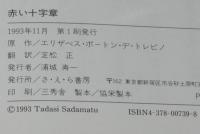 赤い十字章
1993年11月 第1刷発行
原 作/エリザベス・ボートン・デ・トレビノ
翻 訳/定松 正
発行者/浦城 寿一
発行所/さ・え・ら書房
〒162 東京都新宿区市谷砂土原町3
印 刷/三秀舎 製本/協栄製本
© 1993 Tadasi Sadamatu
ISBN4-378-00739-8